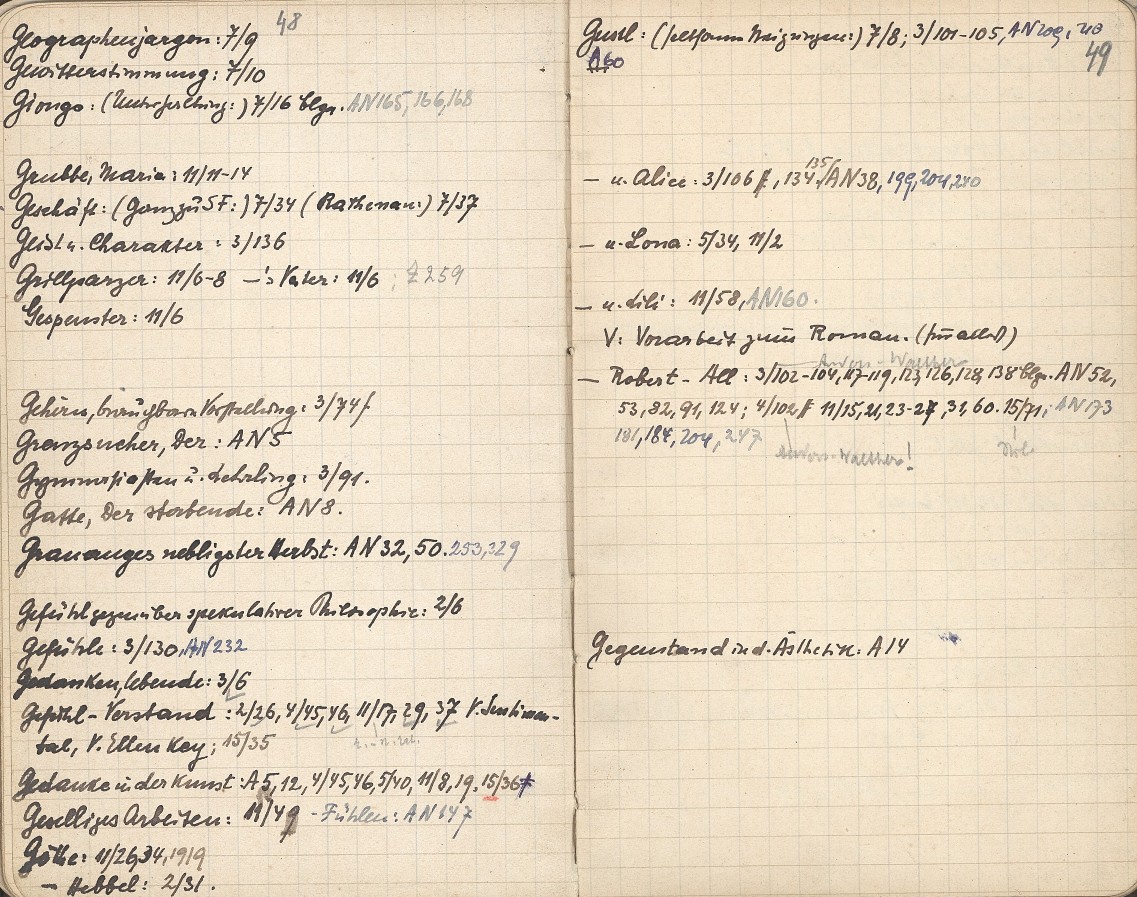 48
Geographenjargon: 7/9
Gewitterstimmung: 7/10
Giongo: ( ) 7/16 blgn. AN165, 166, 168
Grubbe, Maria: 11/11-14
Geschäft: ( ) 7/34 (Rathenau:) 7/37
Geist u. Charakter: 3/136
Grillparzer: 11/6-8 —'s Vater: 11/6 ; Z 259
Gespenster: 11/6
Gehirn, Vorstellung: 3/74f
Grenzsucher, Der: AN5
Gymnasiasten u. Lehrling: 3/91.
Gatte, Der sterbende: AN8.
Grauauges nebligster Herbst: AN32, 50. 253, 329
Gefühl gegenüber spekulativer Philosophie: 2/6
Gefühle: 3/130, AN232
Gedanken, lebende: 3/6
Gefühl – Verstand: 2/26, 4/45, 46, 11/17, 29, 37 V. Sentimen-
tal, V. Ellen Key; 15/35
Gedanke in der Kunst: A5, 12, 4/45, 46, 5/40, 11/8, 19. 15/36
Geselliges Arbeiten: 11/49 - Fühlen: AN147
Göthe: 11/26, 34, 1919
— Hebbel: 2/31.
49
Gustl: (seltsame Neigungen:) 7/8; 3/101-105, AN209, 210
A60
135/
— u. Alice: 3/106 f, 134. AN38, 199, 204, 210
— u. Lona: 5/34, 11/2
— u. Lili: 11/58, AN160.
V: Vorarbeit zum Roman. (für alles)
Anders-Walther
— Robert – All: 3/102-104, 117-119, 123, 126, 128, 138 blgn. AN52,
53, 82, 91, 124; 4/102 ff 11/15, 21, 23-27, 31, 60. 15/71; AN173
181, 184, 204, 247
Anders-Walther!
Gegenstand in d. Ästhetik: A14